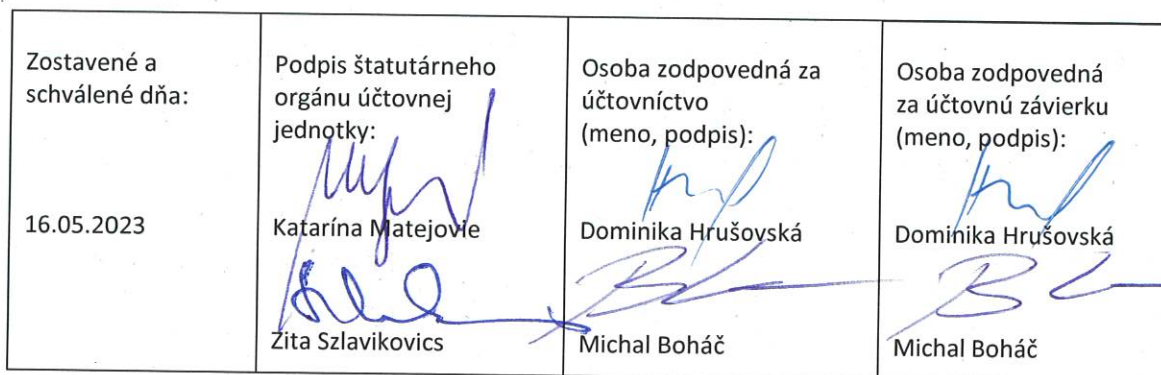 Zostavené a
schválené dňa:
16.05.2023
Podpis štatutárneho
orgánu účtovnej
jednotky:
Katarína Matejovie
Zita Szlavikovics
Osoba zodpovedná za
účtovníctvo
(meno, podpis):
Dominika Hrušovská
Michal Boháč
Osoba zodpovedná
za účtovnú závierku
(meno, podpis):
Dominika Hrušovská
Michal Boháč